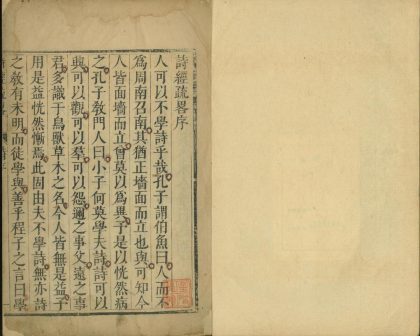 詩經疏畧序
人可以不學詩乎哉孔子謂伯魚曰人而不
為周南召南其猶正墻面而立也與可知今
人皆面墻而立曾莫以為異予是以恍然病
之孔子教門人曰小子何莫學夫詩詩可以
興可以觀可以羣可以怨邇之事父遠之事
君多識于鳥獸草木之名今人皆無是益予
用是益恍然慚焉此固由夫不學詩無亦詩
之教有未明而徒學與善乎程子之言曰學